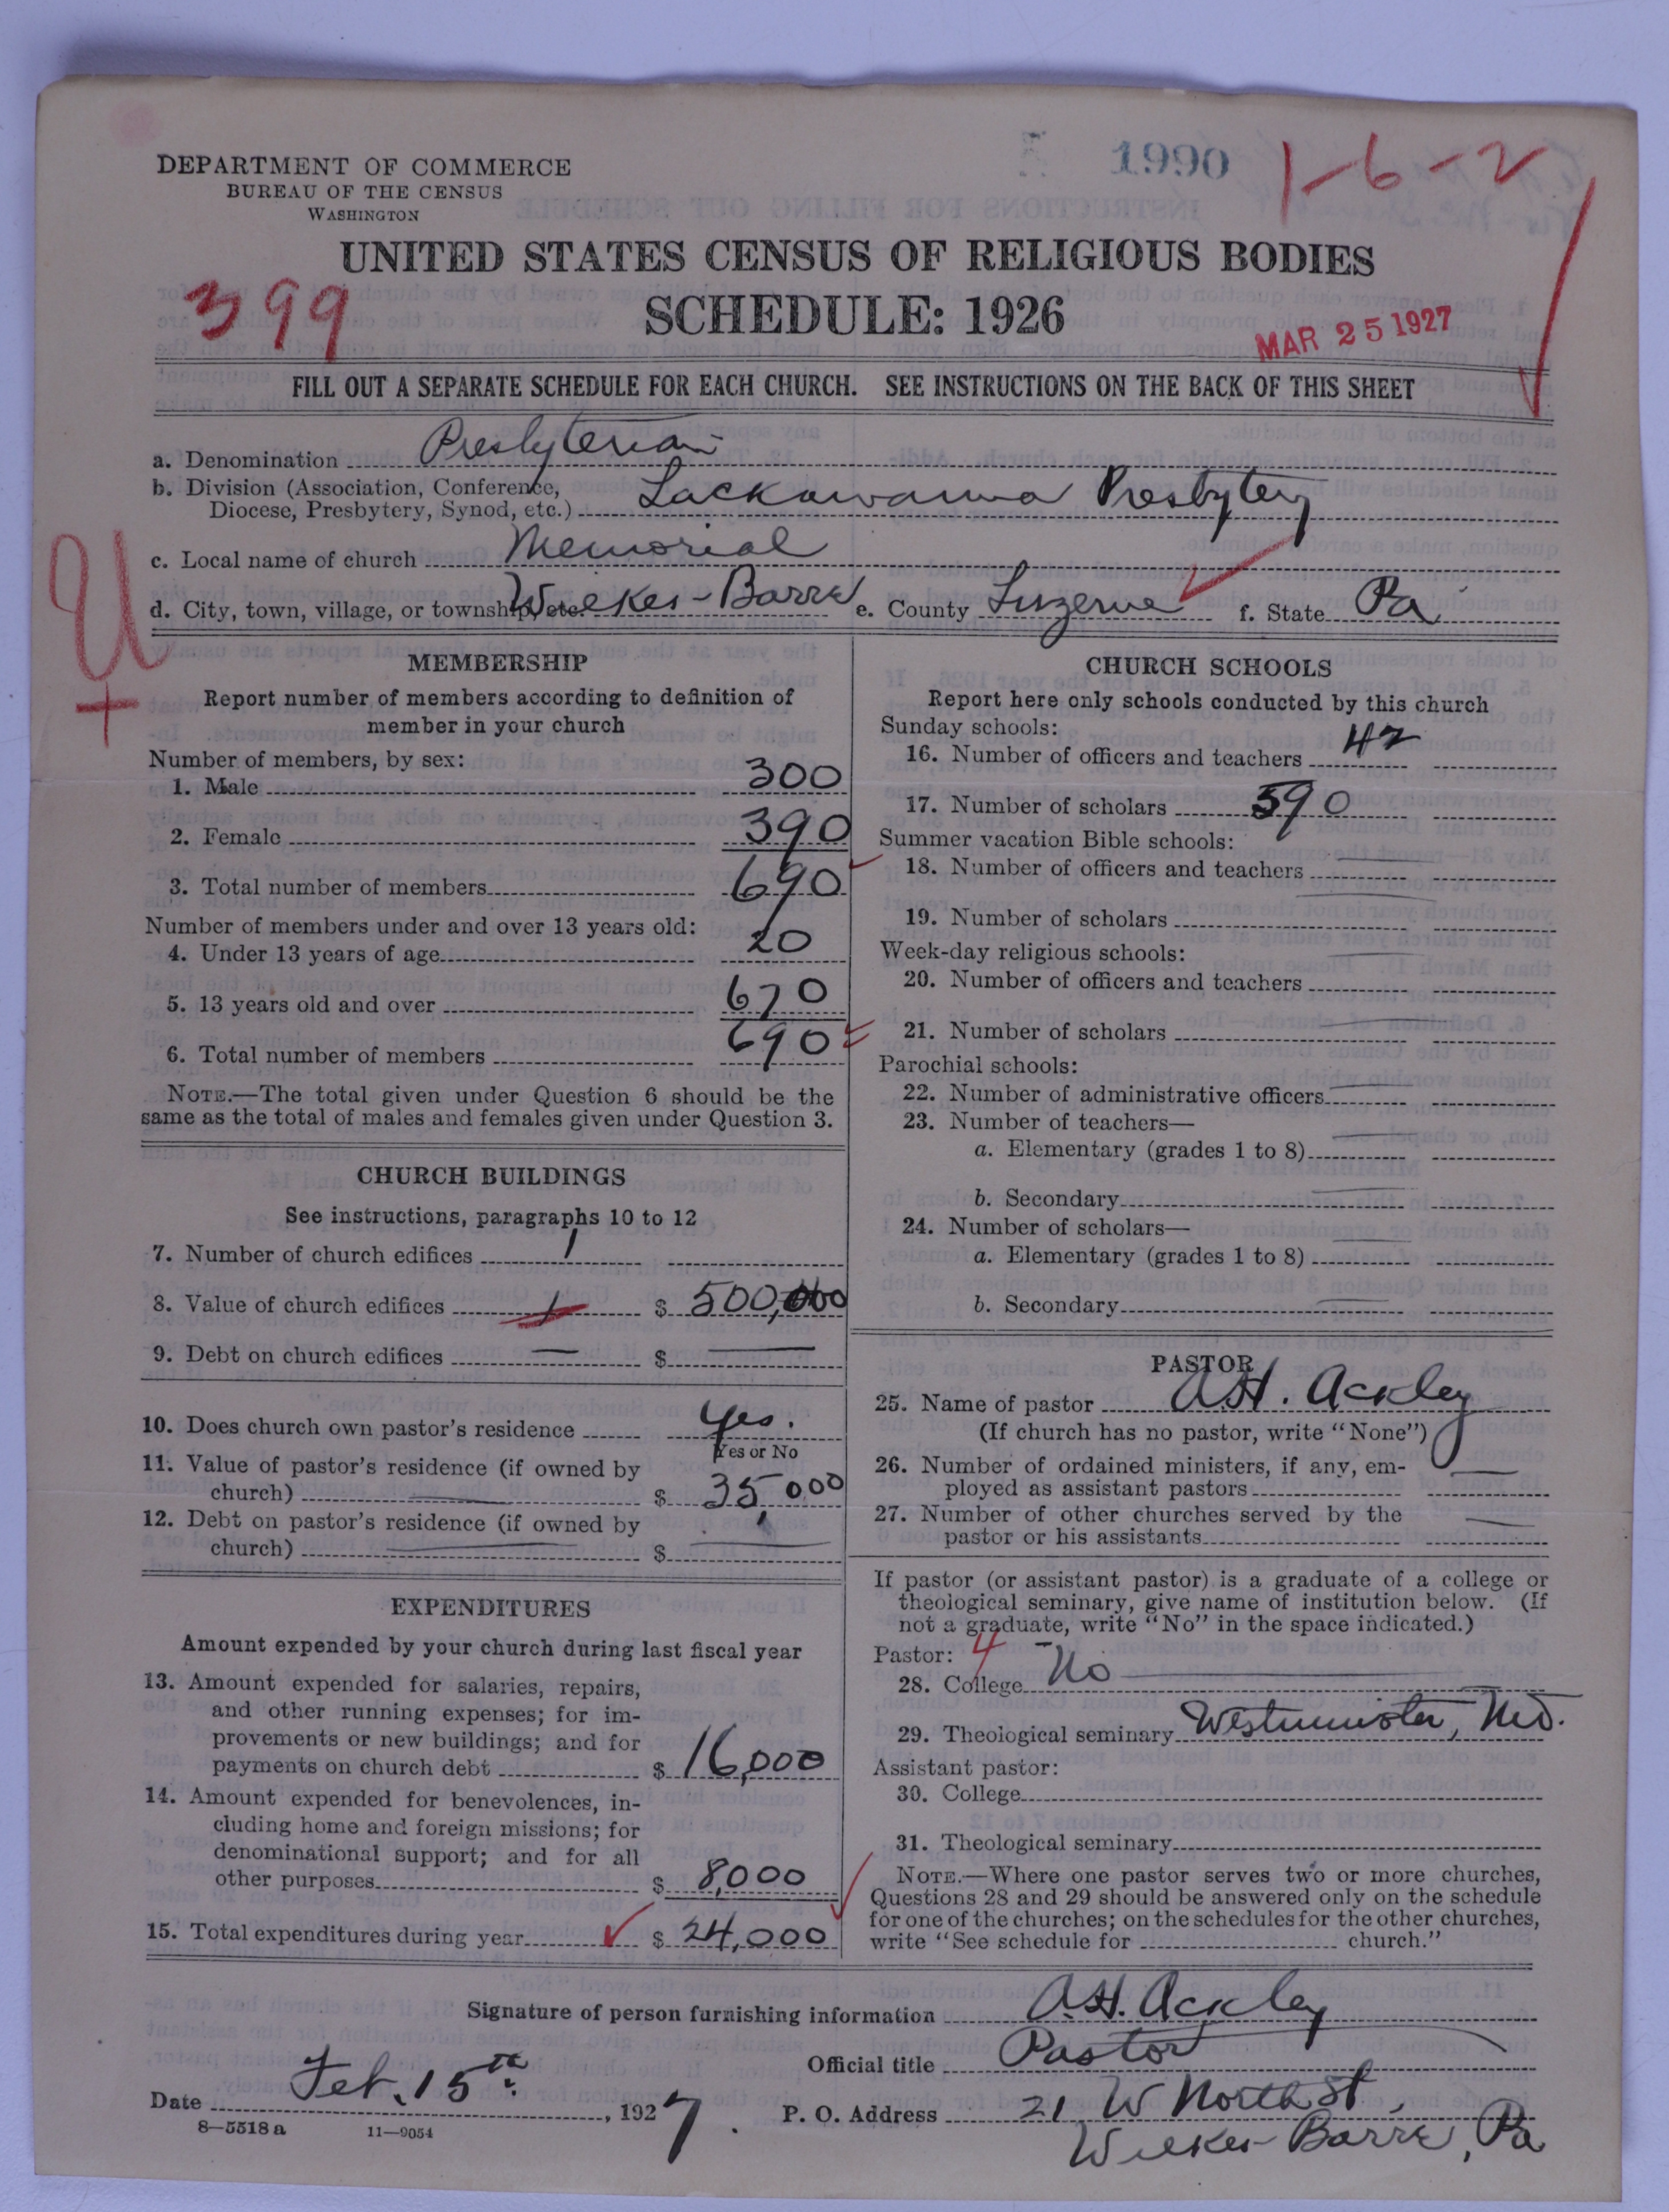 1990
1-6-2
DEPARTMENT OF COMMERCE
BUREAU OF THE CENSUS
WASHINGTON
UNITED STATES CENSUS OF RELIGIOUS BODIES
SCHEDULE: 1926
399
MAR 25 1927
FILL OUT A SEPARATE SCHEDULE FOR EACH CHURCH. SEE INSTRUCTIONS ON THE BACK OF THIS SHEET
a. Denomination Presbyterian
b. Division (Association, Conference,
Diocese, Presbytery, Synod, etc.) Lackawanna Presbytery
c. Local name of church Memorial
d. City, town, village, or township, etc. Wilkes-Barre e. County Luzerne f. State Pa
U
+
MEMBERSHIP
Report number of members according to definition of
member in your church
Number of members, by sex:
1. Male 300
2. Female 390
3. Total number of members 690
Number of members under and over 13 years old:
4. Under 13 years of age 20
5. 13 years old and over 670
6. Total number of members 690
NOTE.—The total given under Question 6 should be the
same as the total of males and females given under Question 3.
CHURCH BUILDINGS
See instructions, paragraphs 10 to 12
7. Number of church edifices 1
8. Value of church edifices 1 $ 500,000
9. Debt on church edifices — $ —
10. Does church own pastor's residence Yes.
Yes or No
11. Value of pastor's residence (if owned by
church) — $ 35,000
12. Debt on pastor's residence (if owned by
church) — $ —
EXPENDITURES
Amount expended by your church during last fiscal year
13. Amount expended for salaries, repairs,
and other running expenses; for im-
provements or new buildings; and for
payments on church debt $ 16,000
14. Amount expended for benevolences, in-
cluding home and foreign missions; for
denominational support; and for all
other purposes $ 8,000
15. Total expenditures during year $ 24,000
CHURCH SCHOOLS
Report here only schools conducted by this church
Sunday schools:
16. Number of officers and teachers 42
17. Number of scholars 590
Summer vacation Bible schools:
18. Number of officers and teachers —
19. Number of scholars —
Week-day religious schools:
20. Number of officers and teachers —
21. Number of scholars —
Parochial schools:
22. Number of administrative officers —
23. Number of teachers—
a. Elementary (grades 1 to 8) —
b. Secondary —
24. Number of scholars—
a. Elementary (grades 1 to 8) —
b. Secondary —
PASTOR
25. Name of pastor A.H. Ackley
(If church has no pastor, write "None")
26. Number of ordained ministers, if any, em-
ployed as assistant pastors —
27. Number of other churches served by the
pastor or his assistants —
If pastor (or assistant pastor) is a graduate of a college or
theological seminary, give name of institution below. (If
not a graduate, write "No" in the space indicated.)
Pastor: 4
28. College No
29. Theological seminary Westminster, Md.
Assistant pastor:
30. College
31. Theological seminary
NOTE.—Where one pastor serves two or more churches,
Questions 28 and 29 should be answered only on the schedule
for one of the churches; on the schedules for the other churches,
write "See schedule for church."
Signature of person furnishing information A.H. Ackley
Official title Pastor
Date Feb. 15th, 1927.
P. O. Address 21 W North St,
Wilkes-Barre, Pa
8—5518a 11—9054